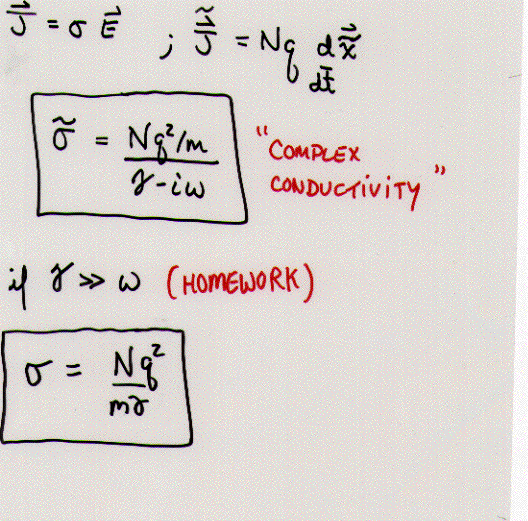 J⃗ = σ E⃗ ; J̃⃗ = Nq dx̃⃗/dt
σ̃ = (Nq²/m)/(γ-iω)
"COMPLEX
CONDUCTIVITY"
if γ >> ω (HOMEWORK)
σ = Nq²/mγ